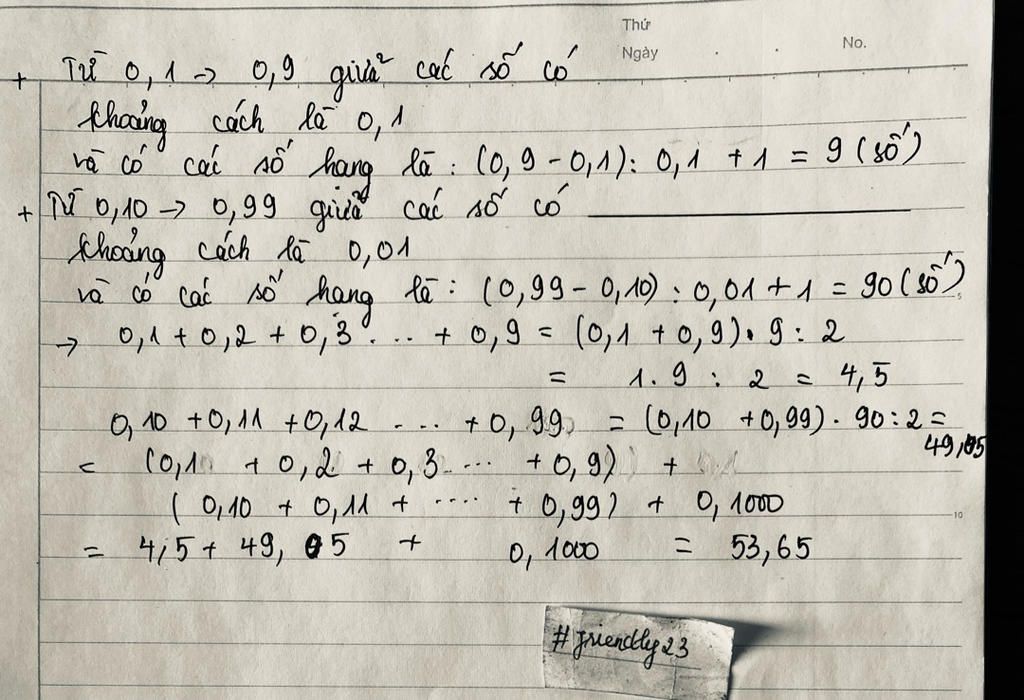 Thứ
Ngày . . No.
+ Từ 0,1 → 0,9 giữa các số có
khoảng cách là 0,1
và có các số hang là : (0,9 - 0,1) : 0,1 + 1 = 9 (số)
+ Từ 0,10 → 0,99 giữa các số có
khoảng cách là 0,01
và có các số hang là : (0,99 - 0,10) : 0,01 + 1 = 90 (số)
→ 0,1 + 0,2 + 0,3 ... + 0,9 = (0,1 + 0,9) . 9 : 2
= 1 . 9 : 2 = 4,5
0,10 + 0,11 + 0,12 ... + 0,99 = (0,10 + 0,99) . 90 : 2 =
49,05
= (0,1 + 0,2 + 0,3 ... + 0,9) +
(0,10 + 0,11 + .... + 0,99) + 0,1000
10
= 4,5 + 49,05 + 0,1000 = 53,65
#friendly23